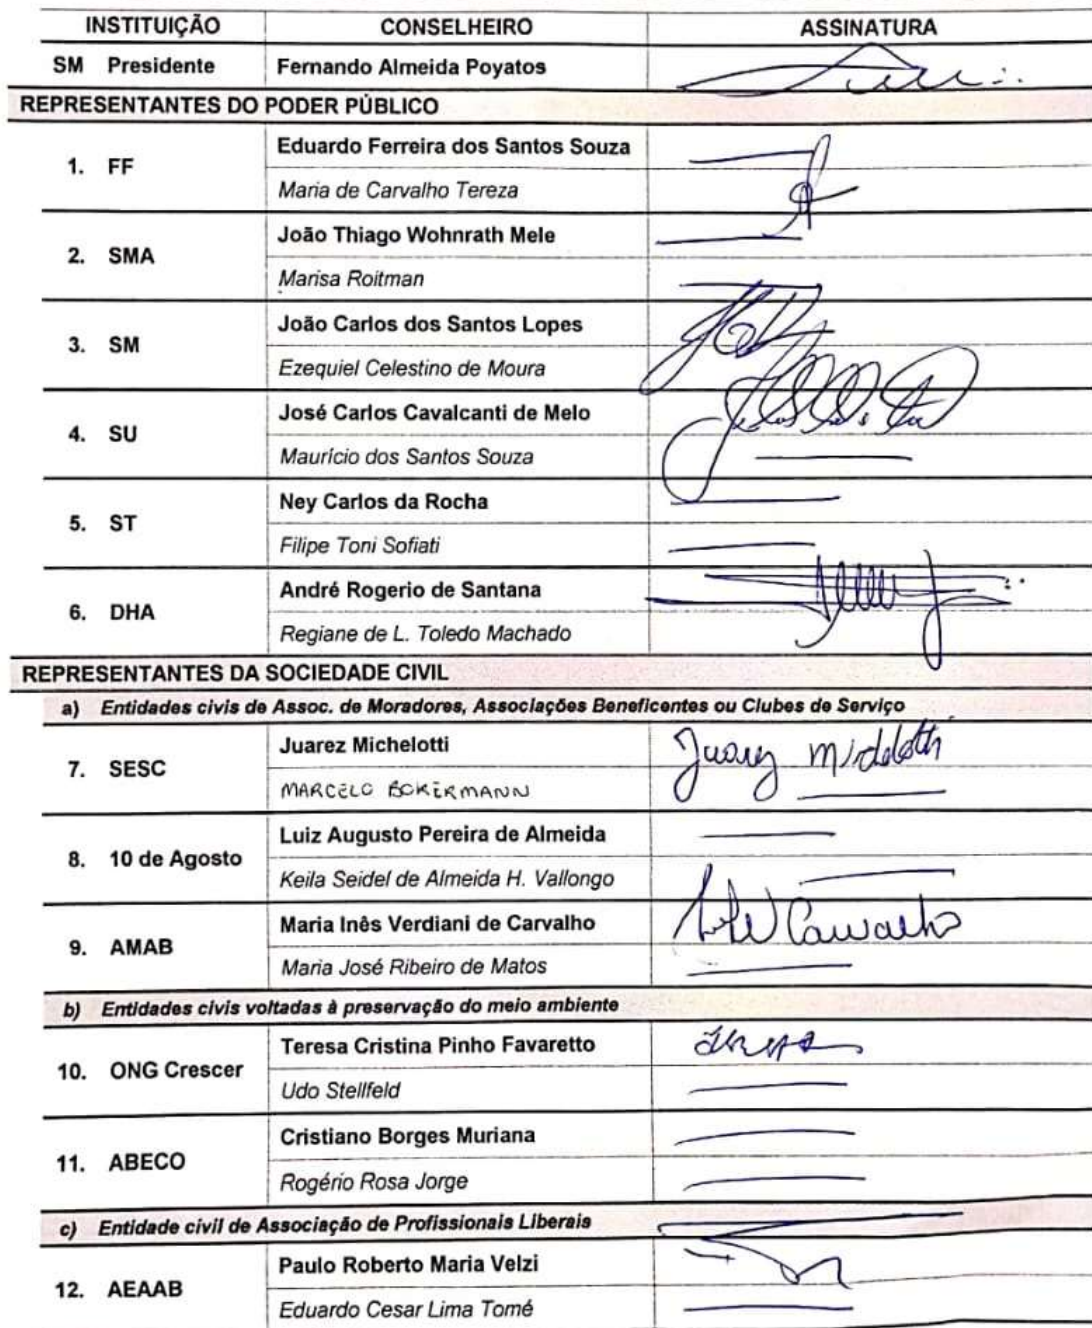 INSTITUIÇÃO CONSELHEIRO ASSINATURA
SM Presidente Fernando Almeida Poyatos
REPRESENTANTES DO PODER PÚBLICO
1. FF Eduardo Ferreira dos Santos Souza
Maria de Carvalho Tereza
2. SMA João Thiago Wohnrath Mele
Marisa Roitman
3. SM João Carlos dos Santos Lopes
Ezequiel Celestino de Moura
4. SU José Carlos Cavalcanti de Melo
Maurício dos Santos Souza
5. ST Ney Carlos da Rocha
Filipe Toni Sofiati
6. DHA André Rogerio de Santana
Regiane de L. Toledo Machado
REPRESENTANTES DA SOCIEDADE CIVIL
a) Entidades civis de Assoc. de Moradores, Associações Beneficentes ou Clubes de Serviço
7. SESC Juarez Michelotti Juarez Michelotti
MARCELO BOKERMANN
8. 10 de Agosto Luiz Augusto Pereira de Almeida
Keila Seidel de Almeida H. Vallongo
9. AMAB Maria Inês Verdiani de Carvalho Carvalho
Maria José Ribeiro de Matos
b) Entidades civis voltadas à preservação do meio ambiente
10. ONG Crescer Teresa Cristina Pinho Favaretto
Udo Stellfeld
11. ABECO Cristiano Borges Muriana
Rogério Rosa Jorge
c) Entidade civil de Associação de Profissionais Liberais
12. AEAAB Paulo Roberto Maria Velzi
Eduardo Cesar Lima Tomé